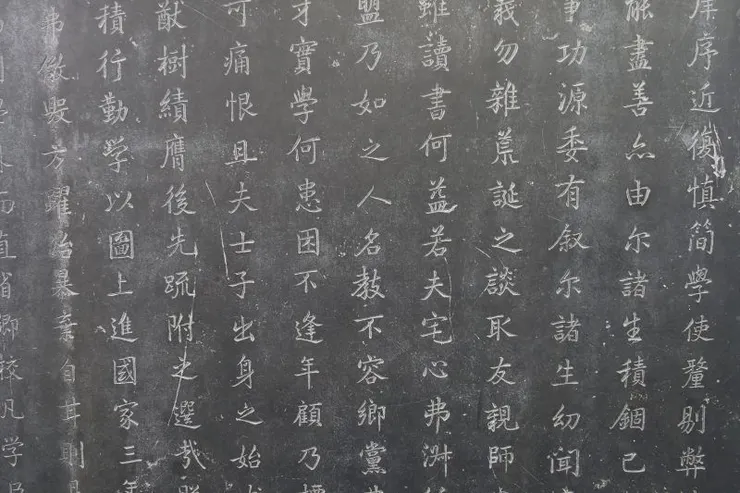 庠序近復慎簡學使釐剔弊
能盡善亦由尔諸生積錮已
事功源委有叙尔諸生幼聞
義勿雜荒誕之談取友親師
雖讀書何益若夫宅心弗淑
盟乃如之人名教不容鄉黨
才實學何患困不逢年顧乃標
可痛恨且夫士子出身之始
猷樹績膺後先疏附之選哉
積行勤學以圖上進國家三年
弗儆毖方躍冶暴棄自甘則
而直省鄉凡学